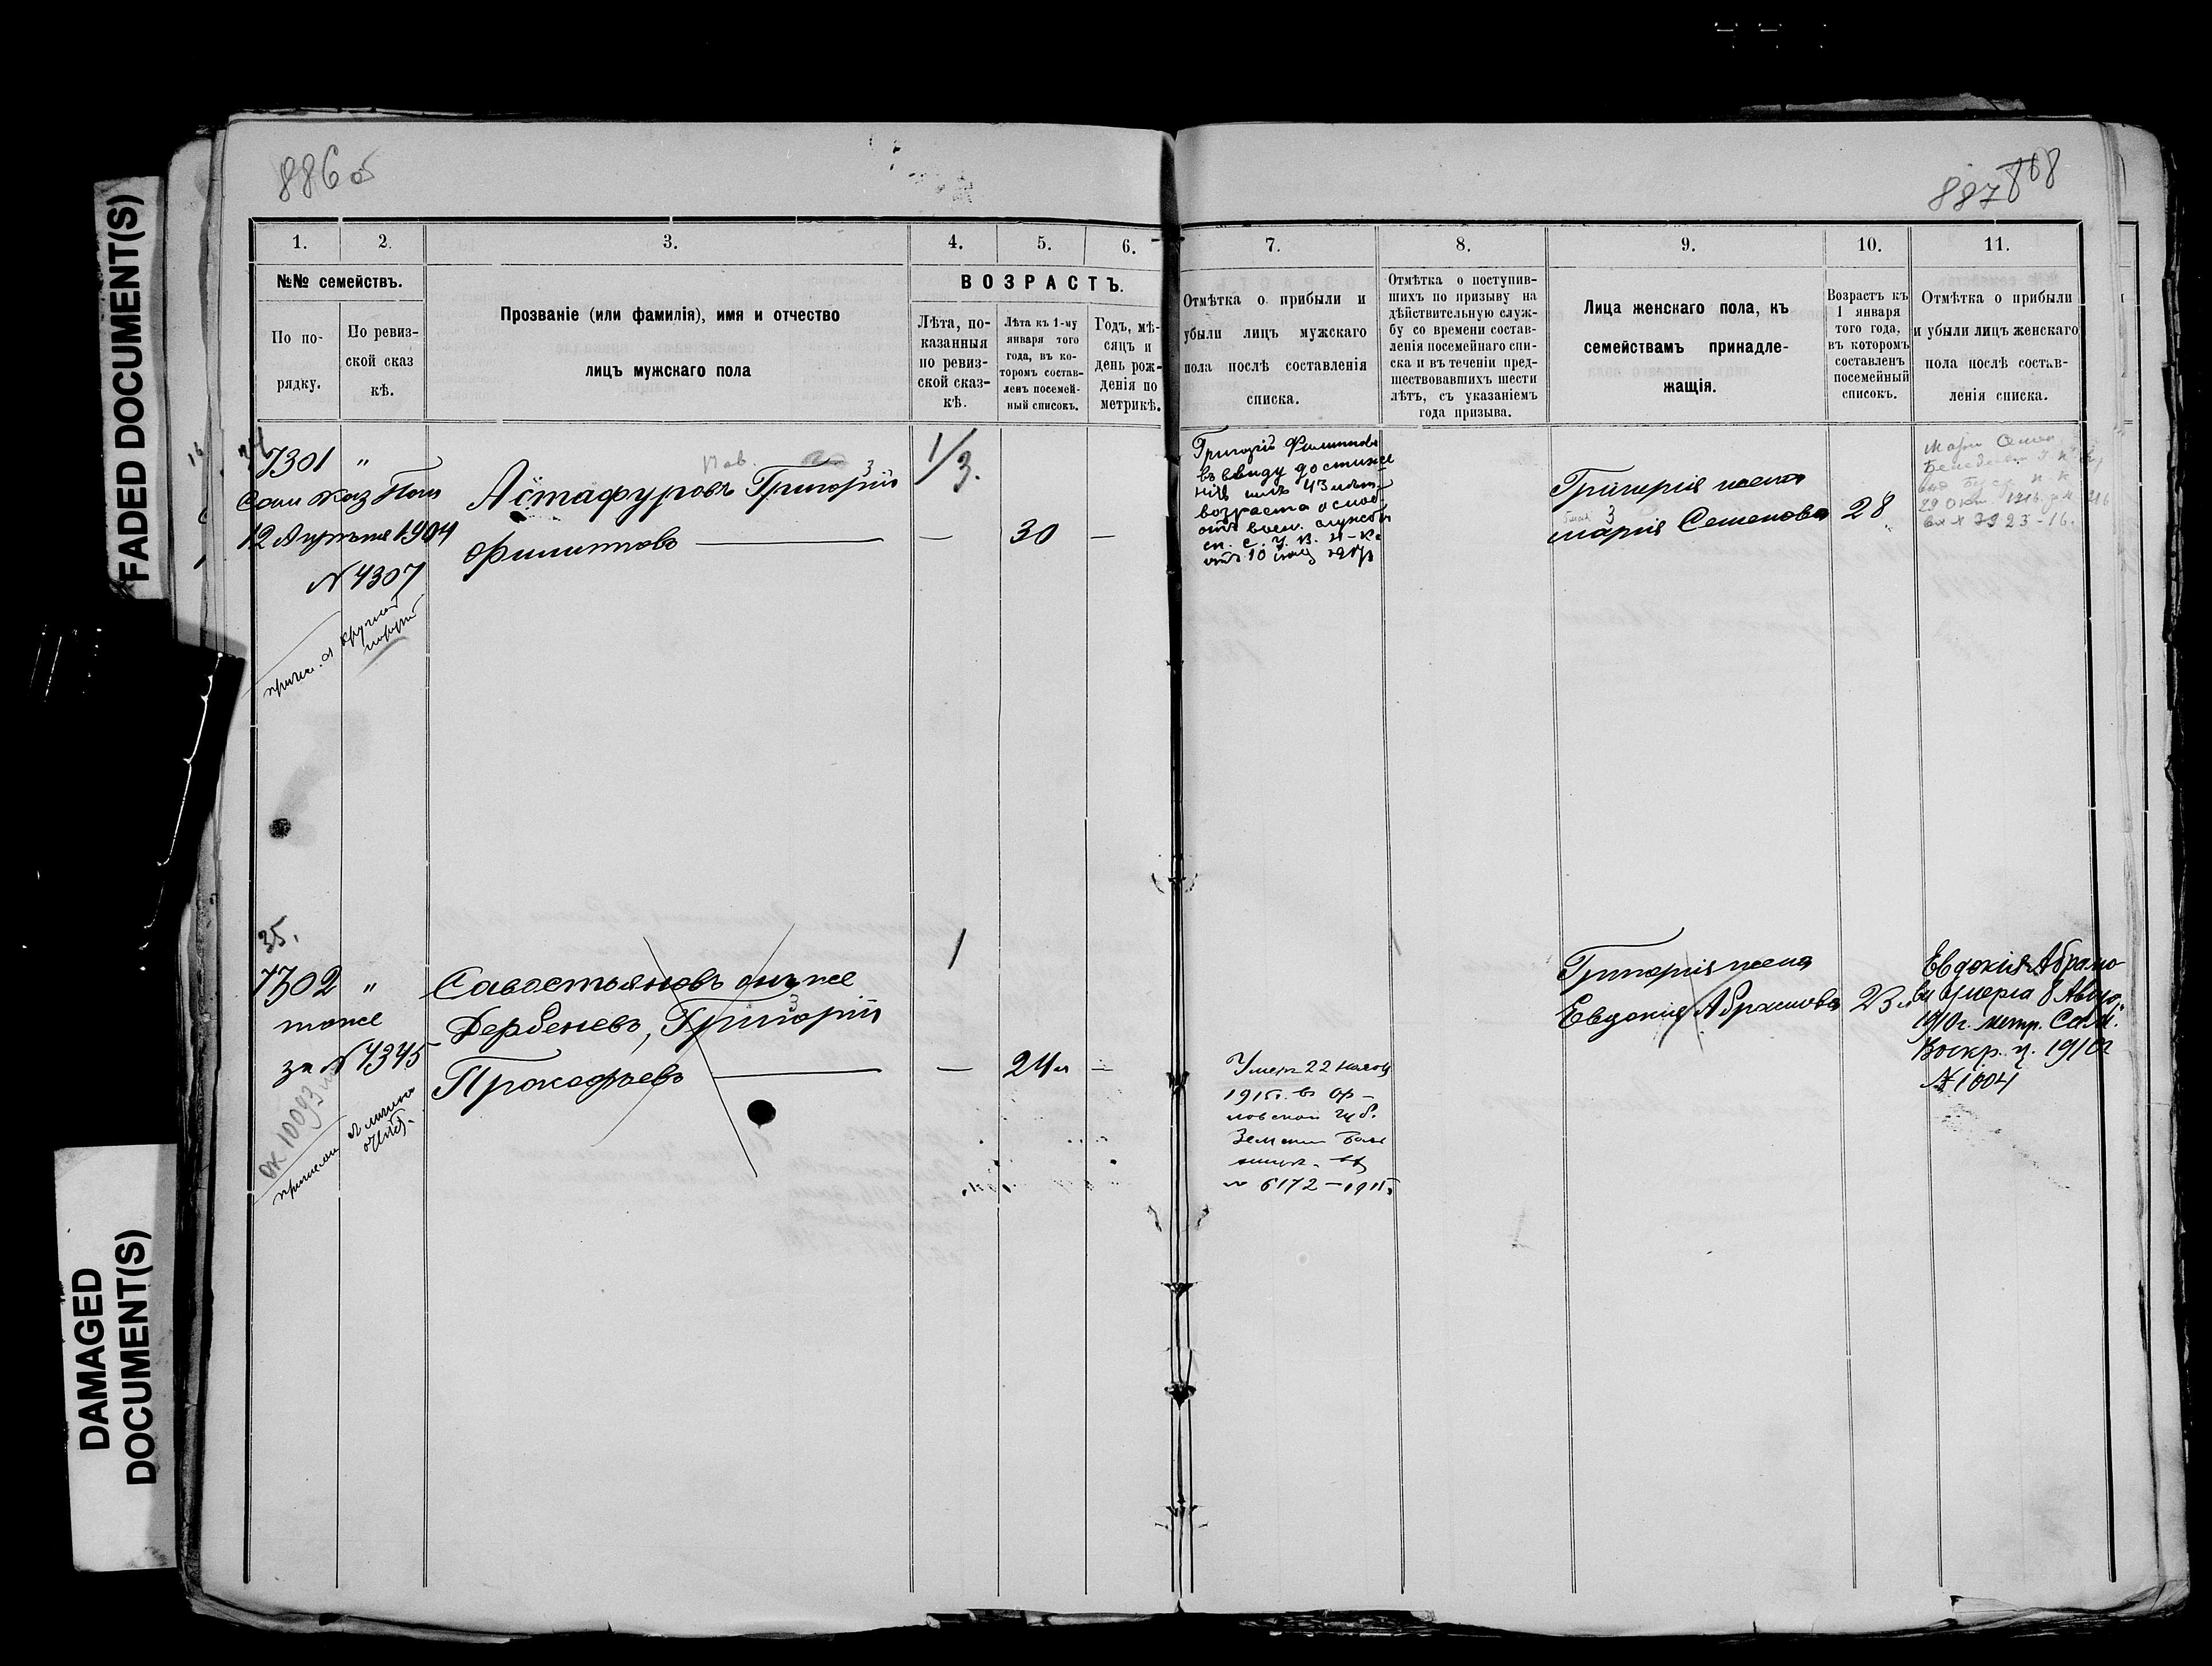 FADED DOCUMENT(S)
DAMAGED
DOCUMENT(S)
886 об
887
868
1.
2.
3.
4.
5.
6.
№№ семействъ.
По по-
рядку.
По ревиз-
ской сказ
кѣ.
Прозваніе (или фамилія), имя и отчество
лицъ мужскаго пола
ВОЗРАСТЪ.
Лѣта, по-
казанныя
по ревиз-
ской сказ-
кѣ.
Лѣта къ 1-му
января того
года, въ ко-
торомъ состав-
ленъ посемей-
ный списокъ.
Годъ, мѣ-
сяцъ и
день рож-
денія по
метрикѣ.
7.
8.
9.
10.
11.
Отмѣтка о прибыли и
убыли лицъ мужскаго
пола послѣ составленія
списка.
Отмѣтка о поступив-
шихъ по призыву на
дѣйствительную служ-
бу со времени состав-
ленія посемейнаго спи-
ска и въ теченіи пред-
шествовавшихъ шести
лѣтъ, съ указаніемъ
года призыва.
Лица женскаго пола, къ
семействамъ принадле-
жащія.
Возрастъ къ
1 января
того года,
въ которомъ
составленъ
посемейный
списокъ.
Отмѣтка о прибыли
и убыли лицъ женскаго
пола послѣ состав-
ленія списка.
7301 "
Сам Каз Пал
12 Апрѣля 1904
№ 4307
Астафуровъ Григорій 3
Филипповъ
1/3.
— 30 —
Григорій Филипповъ
въ виду достиже
нія имъ 43 лѣт.
возраста освоб.
отъ воен. службы
отъ 10
Григорія жена
3
Марія Семенова 28
29 Окт. 1916
7923-16.
35.
7302 "
тоже
за № 4345
Савостьяновъ онъ же
Дербеневъ, Григорій 3
Прокофьевъ
1
— 24 л —
Умеръ 22
1915г. въ Ор-
ловской губ.
Земской Боль
ницѣ.
№ 6172-1915
Григорія жена
Евдокія Абрамова 23 л
Евдокія Абрамо
ва умерла 8 Авг.
1910г. метр. Сам.
Воскр. ц. 1910г
№ 1004